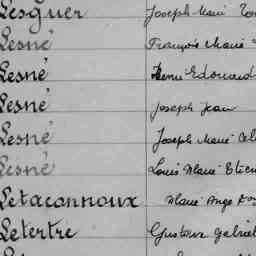 Lesguer Joseph Marie
Lesné François Marie
Lesné Henri Edouard
Lesné Joseph Jean
Lesné Joseph Marie
Lesné Louis Marie
Letaconnoux Marie Ange
Letertre Gustave Gabriel